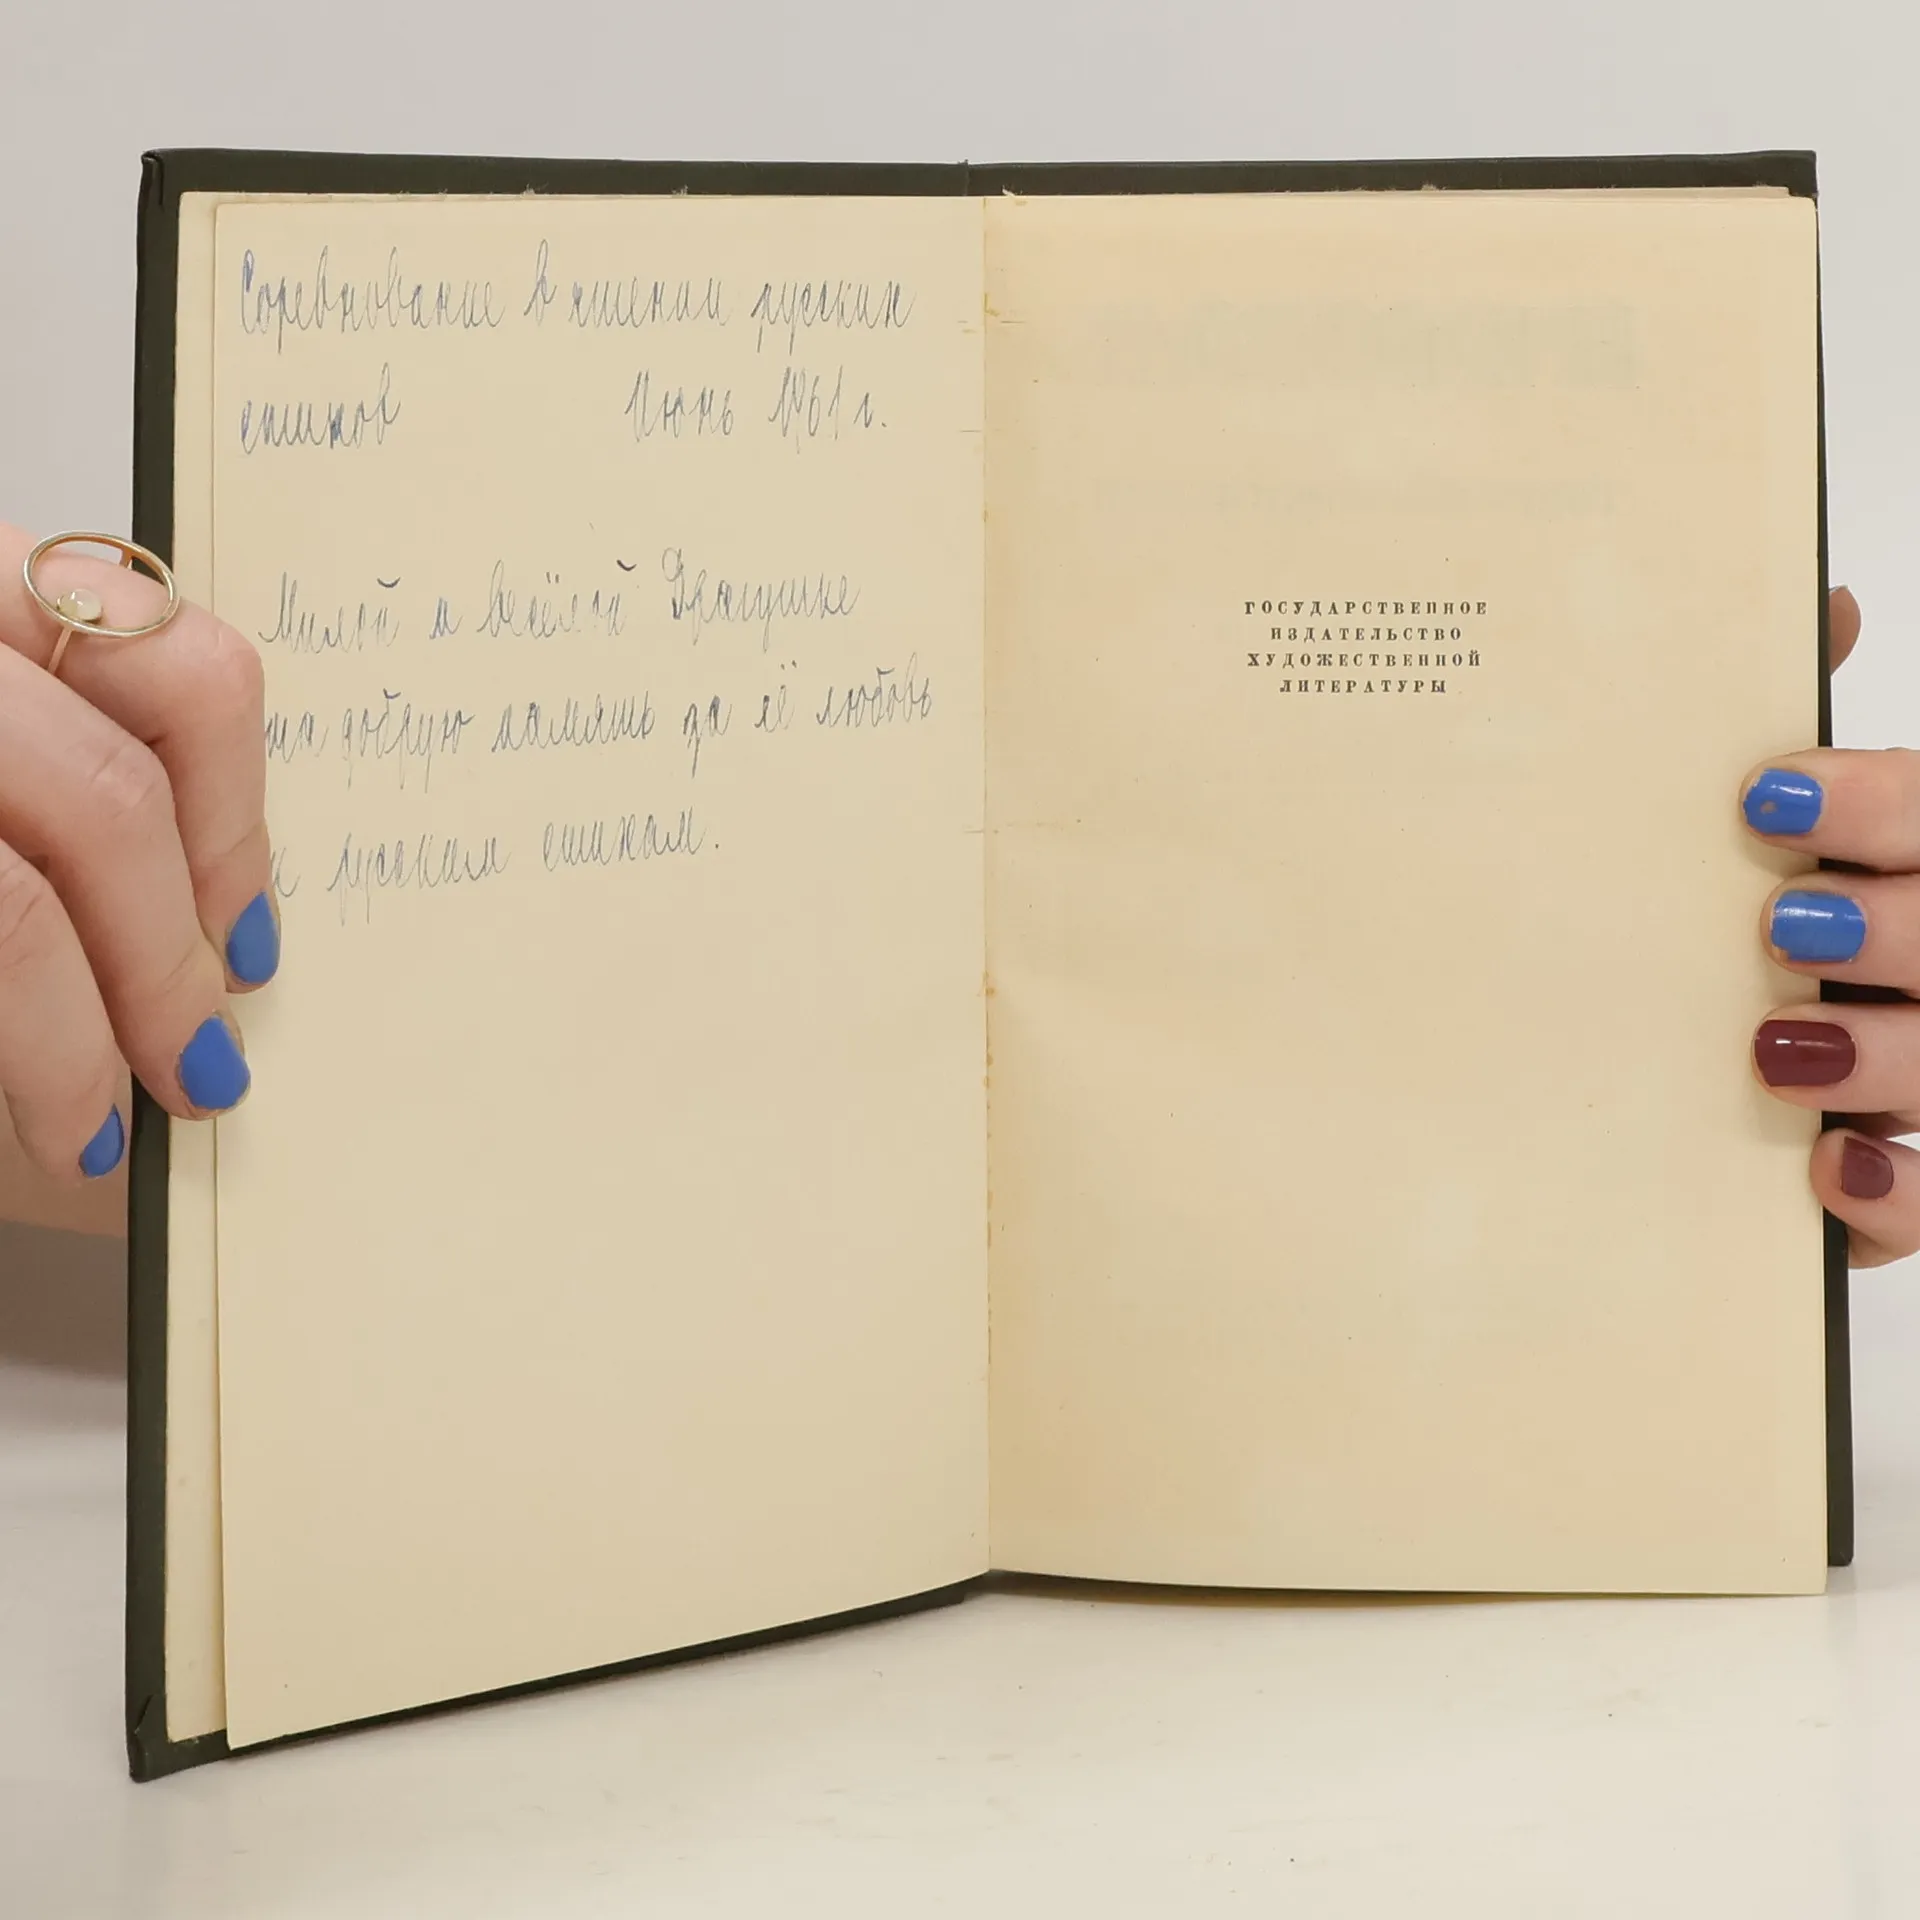 Соревнование в чтении русских
стихов Июнь 1961 г.
Милой и весёлой Драгушке
на добрую память за её любовь
к русским стихам.
ГОСУДАРСТВЕННОЕ
ИЗДАТЕЛЬСТВО
ХУДОЖЕСТВЕННОЙ
ЛИТЕРАТУРЫ